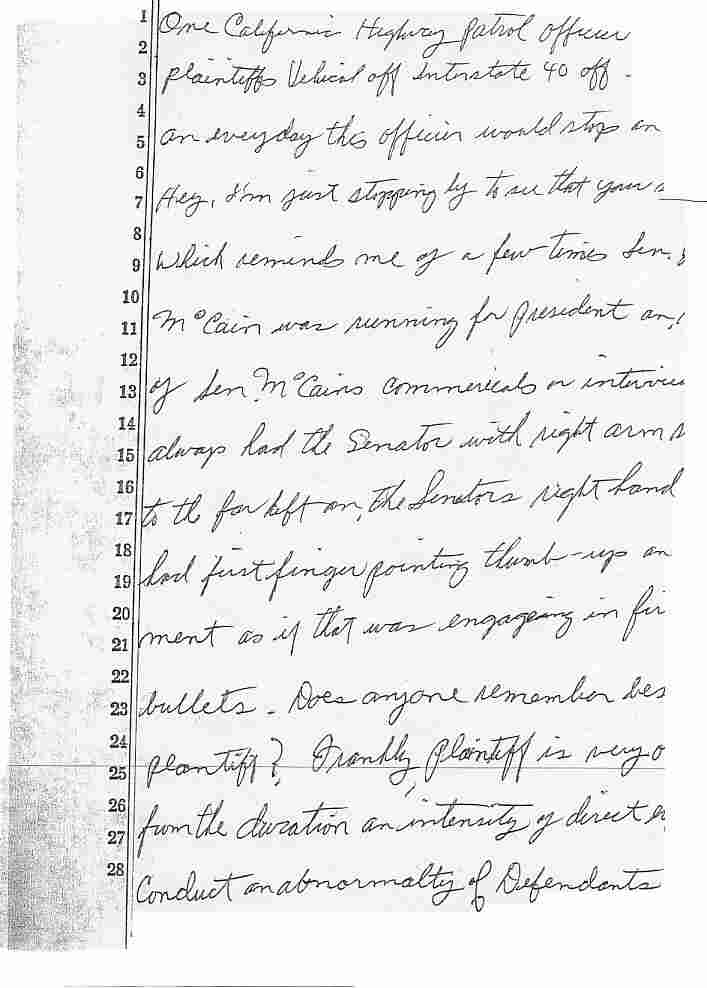 1 One California Highway Patrol officer
2
3 plaintiffs Vehical off Interstate 40 off
4
5 an everyday this officier would stop an
6
7 Hey, I'm just stopping by to see that you
8
9 Which reminds me of a few times Sen.
10
11 McCain was running for president an,
12
13 of Sen. McCains commericals or intervie
14
15 always had the Senator with right arm s
16
17 to th far left an, the Senators right hand
18
19 had first finger pointing thumb-up an
20
21 ment as if that was engageing in fir
22
23 bullets. Does anyone remember bes
24
25 plantiff? Frankly, plaintiff is very o
26
27 from the duration an intensity of direct
28
Conduct an abnormalty of Defendants